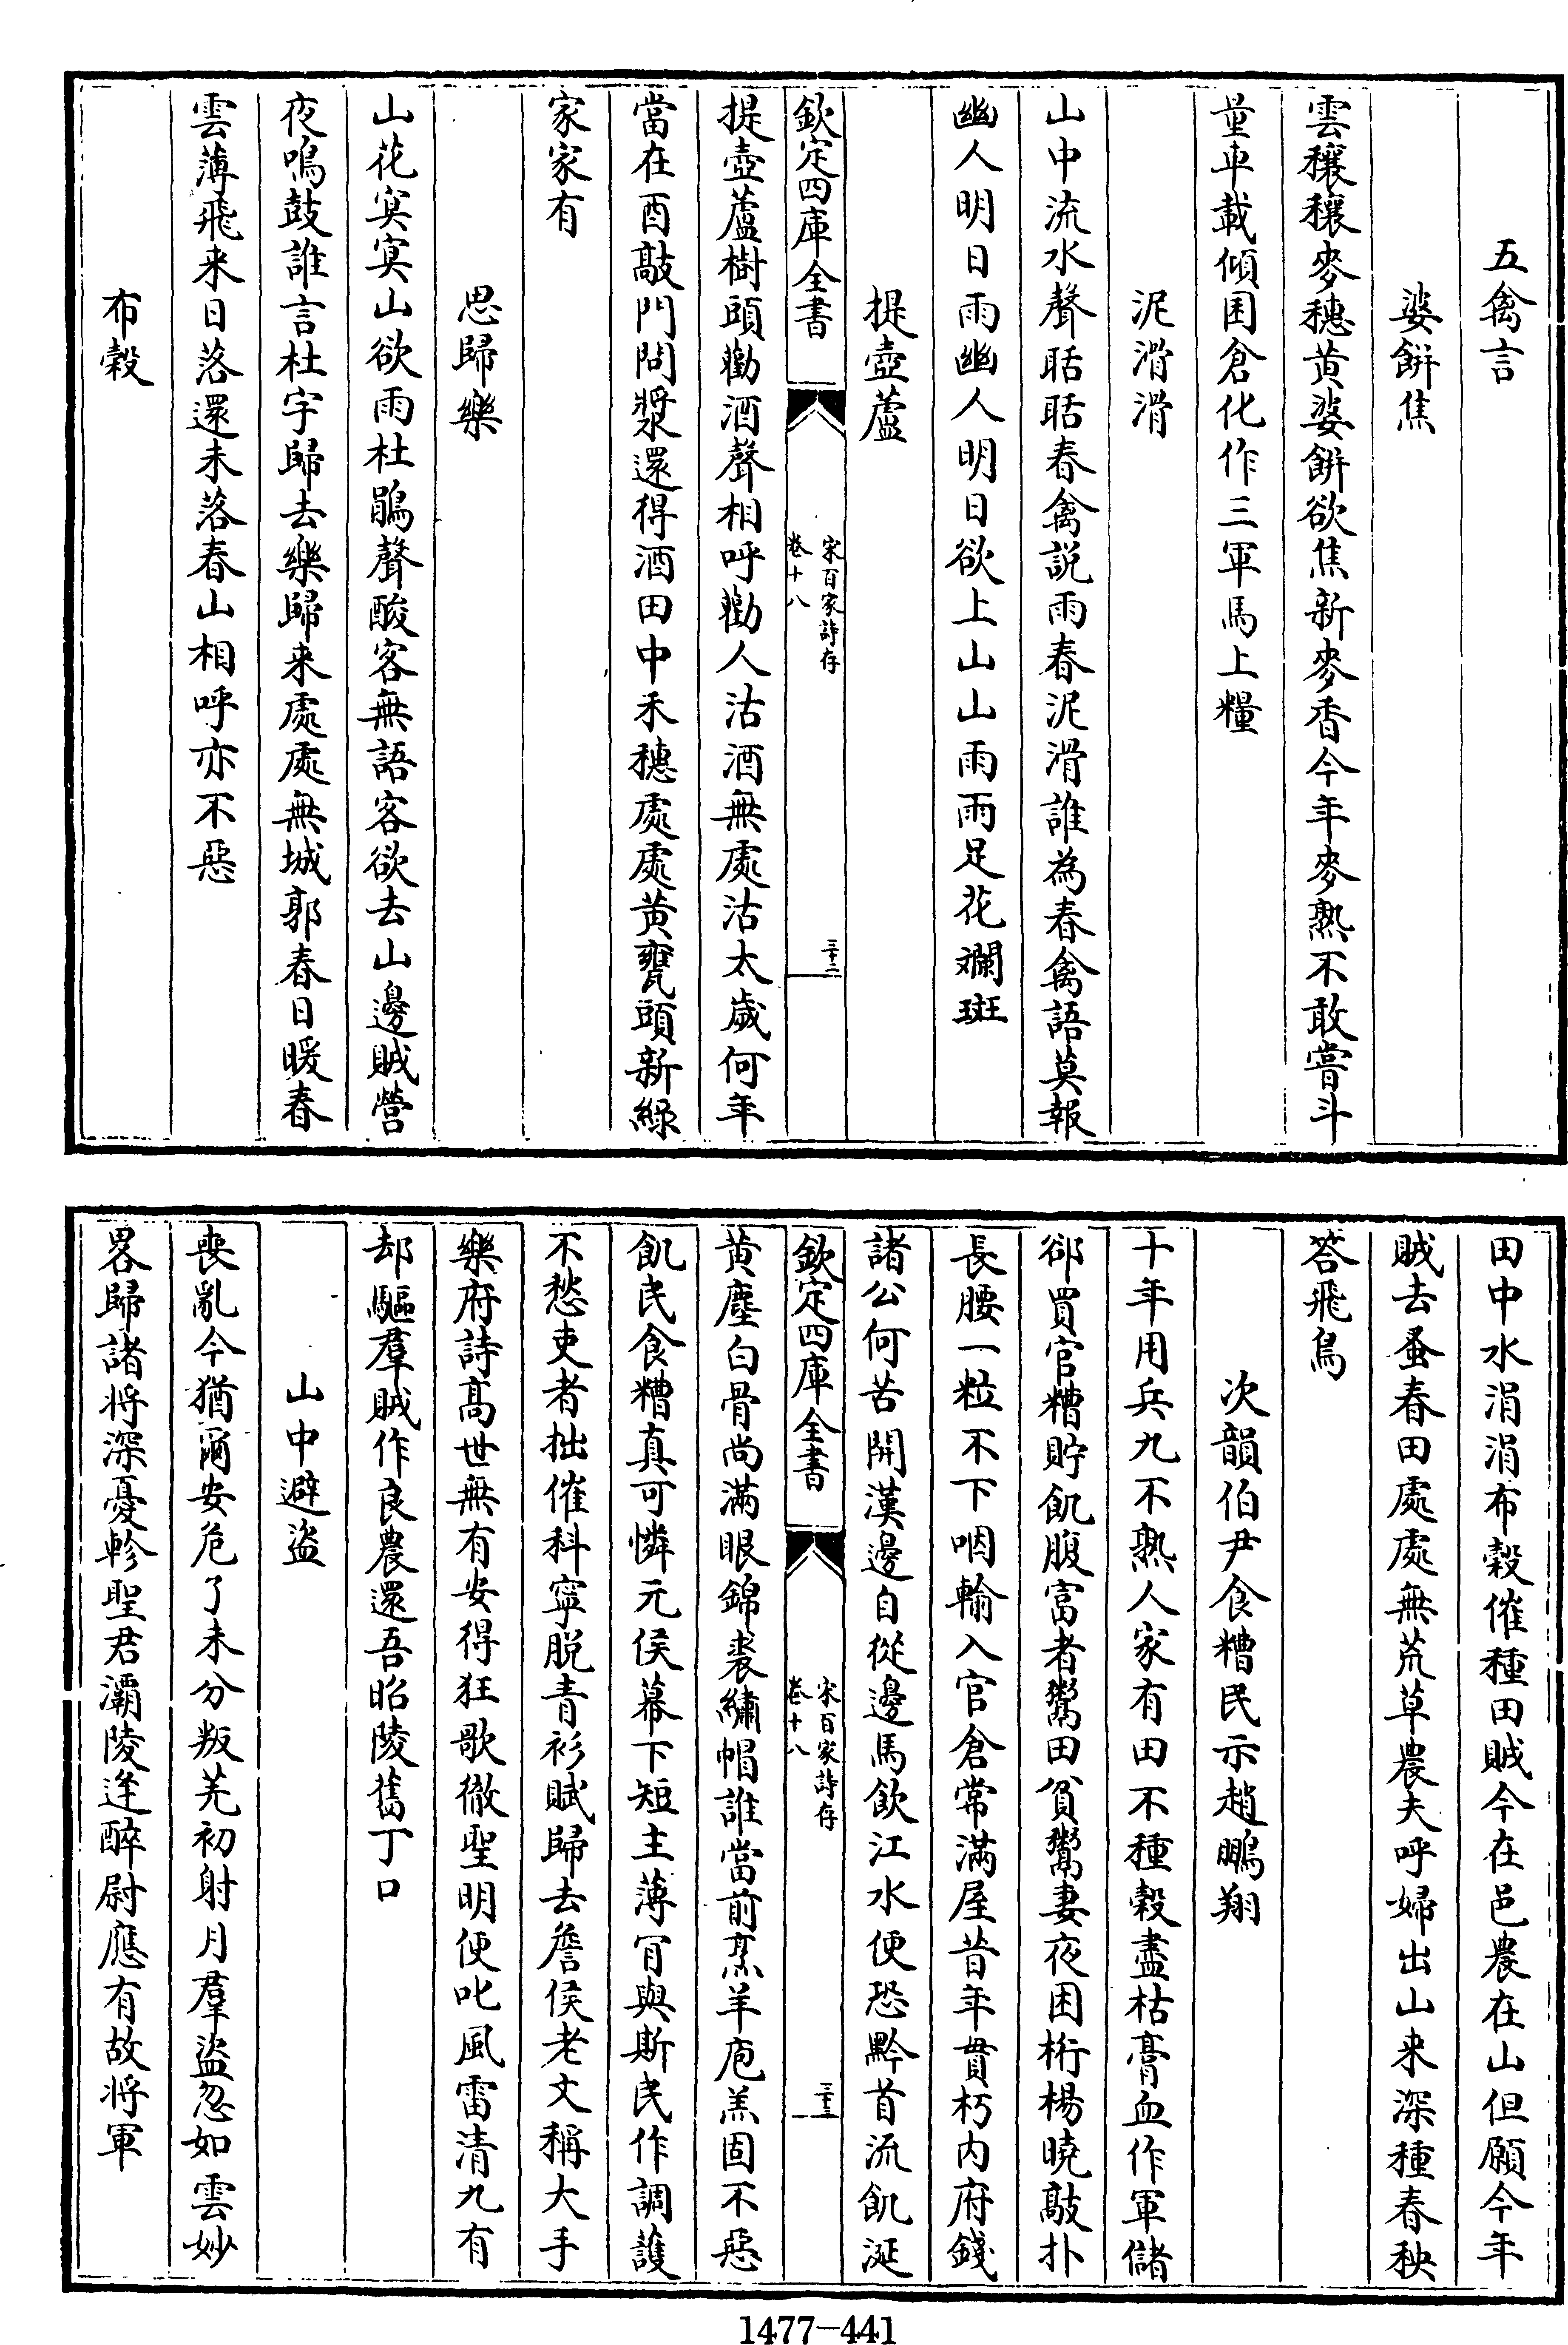 五禽言
婆餅焦
雲穰穰麥穗黄婆餅欲焦新麥香今年麥熟不敢嘗斗
量車載傾囷倉化作三軍馬上糧
泥滑滑
山中流水聲聒聒春禽説雨春泥滑誰為春禽語莫報
幽人明日雨幽人明日欲上山山雨雨足花斕斑
提壺蘆
欽定四庫全書
宋百家詩存
卷十八
三十二
提壺蘆樹頭勸酒聲相呼勸人沽酒無處沽太歲何年
當在酉敲門問漿還得酒田中禾穗處處黄甕頭新緑
家家有
思歸樂
山花冥冥山欲雨杜鵑聲酸客無語客欲去山邊賊營
夜鳴鼓誰言杜宇歸去樂歸来處處無城郭春日暖春
雲薄飛来日落還未落春山相呼亦不惡
布穀
田中水涓涓布穀催種田賊今在邑農在山但願今年
賊去蚤春田處處無荒草農夫呼婦出山来深種春秧
荅飛鳥
次韻伯尹食糟民示趙鵬翔
十年用兵九不熟人家有田不種穀盡枯膏血作軍儲
郤買官糟貯飢腹富者鬻田貧鬻妻夜困桁楊曉敲扑
長腰一粒不下咽輸入官倉常滿屋昔年貫朽内府錢
諸公何苦開漢邊自從邊馬飲江水便恐黔首流飢涎
欽定四庫全書
宋百家詩存
卷十八
三十三
黄塵白骨尚滿眼錦裘繡帽誰當前烹羊庖羔固不惡
飢民食糟真可憐元侯幕下短主薄肎與斯民作調護
不愁吏者拙催科寧脱青衫賦歸去詹侯老文稱大手
樂府詩髙世無有安得狂歌徹聖明便叱風雷清九有
却驅羣賊作良農還吾昭陵舊丁口
山中避盜
喪亂今猶爾安危了未分叛羌初射月羣盜忽如雲妙
畧歸諸将深憂軫聖君灞陵逢醉尉應有故将軍
1477—441